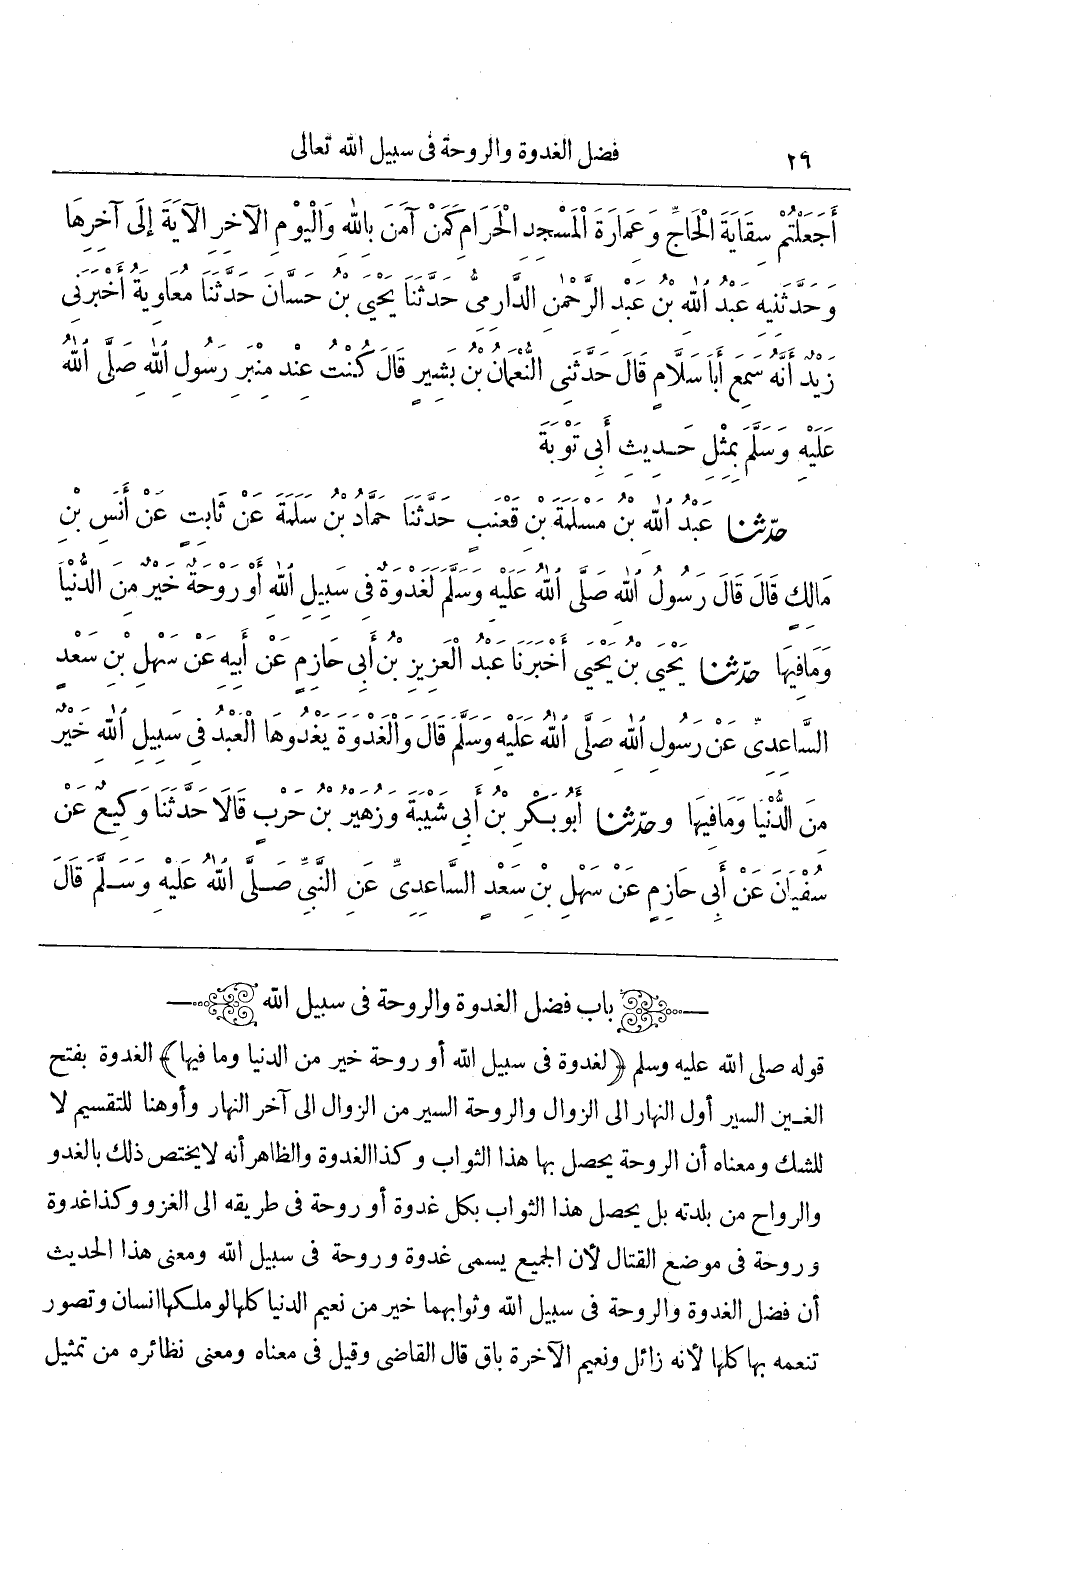 ٢٩ فضل الغدوة والروحة فى سبيل الله تعالى
أَجَعَلْتُمْ سِقَايَةَ الْحَاجِّ وَعِمَارَةَ الْمَسْجِدِ الْحَرَامِ كَمَنْ آمَنَ بِاللهِ وَالْيَوْمِ الْآخِرِ الْآيَةَ إِلَى آخِرِهَا
وَحَدَّثَنِيهِ عَبْدُ اللهِ بْنُ عَبْدِ الرَّحْمٰنِ الدَّارِمِىُّ حَدَّثَنَا يَحْيَى بْنُ حَسَّانَ حَدَّثَنَا مُعَاوِيَةُ أَخْبَرَنِى
زَيْدٌ أَنَّهُ سَمِعَ أَبَا سَلَّامٍ قَالَ حَدَّثَنِى النُّعْمَانُ بْنُ بَشِيرٍ قَالَ كُنْتُ عِنْدَ مِنْبَرِ رَسُولِ اللهِ صَلَّى اللهُ
عَلَيْهِ وَسَلَّمَ بِمِثْلِ حَدِيثِ أَبِى تَوْبَةَ
حدّثنا عَبْدُ اللهِ بْنُ مَسْلَمَةَ بْنِ قَعْنَبٍ حَدَّثَنَا حَمَّادُ بْنُ سَلَمَةَ عَنْ ثَابِتٍ عَنْ أَنَسِ بْنِ
مَالِكٍ قَالَ قَالَ رَسُولُ اللهِ صَلَّى اللهُ عَلَيْهِ وَسَلَّمَ لَغَدْوَةٌ فِى سَبِيلِ اللهِ أَوْ رَوْحَةٌ خَيْرٌ مِنَ الدُّنْيَا
وَمَا فِيهَا حدّثنا يَحْيَى بْنُ يَحْيَى أَخْبَرَنَا عَبْدُ الْعَزِيزِ بْنُ أَبِى حَازِمٍ عَنْ أَبِيهِ عَنْ سَهْلِ بْنِ سَعْدٍ
السَّاعِدِىِّ عَنْ رَسُولِ اللهِ صَلَّى اللهُ عَلَيْهِ وَسَلَّمَ قَالَ وَالْغَدْوَةَ يَغْدُوهَا الْعَبْدُ فِى سَبِيلِ اللهِ خَيْرٌ
مِنَ الدُّنْيَا وَمَا فِيهَا وحدّثنا أَبُو بَكْرِ بْنُ أَبِى شَيْبَةَ وَزُهَيْرُ بْنُ حَرْبٍ قَالَا حَدَّثَنَا وَكِيعٌ عَنْ
سُفْيَانَ عَنْ أَبِى حَازِمٍ عَنْ سَهْلِ بْنِ سَعْدٍ السَّاعِدِىِّ عَنِ النَّبِىِّ صَلَّى اللهُ عَلَيْهِ وَسَلَّمَ قَالَ
باب فضل الغدوة والروحة فى سبيل الله
قوله صلى الله عليه وسلم ﴿لغدوة فى سبيل الله أو روحة خير من الدنيا وما فيها﴾ الغدوة بفتح
الغين السير أول النهار الى الزوال والروحة السير من الزوال الى آخر النهار وأوهنا للتقسيم لا
للشك ومعناه أن الروحة يحصل بها هذا الثواب وكذا الغدوة والظاهر أنه لا يختص ذلك بالغدو
والرواح من بلدته بل يحصل هذا الثواب بكل غدوة أو روحة فى طريقه الى الغزو وكذا غدوة
وروحة فى موضع القتال لأن الجميع يسمى غدوة وروحة فى سبيل الله ومعنى هذا الحديث
أن فضل الغدوة والروحة فى سبيل الله وثوابهما خير من نعيم الدنيا كلها لو ملكها انسان وتصور
تنعمه بها كلها لأنه زائل ونعيم الآخرة باق قال القاضى وقيل فى معناه ومعنى نظائره من تمثيل